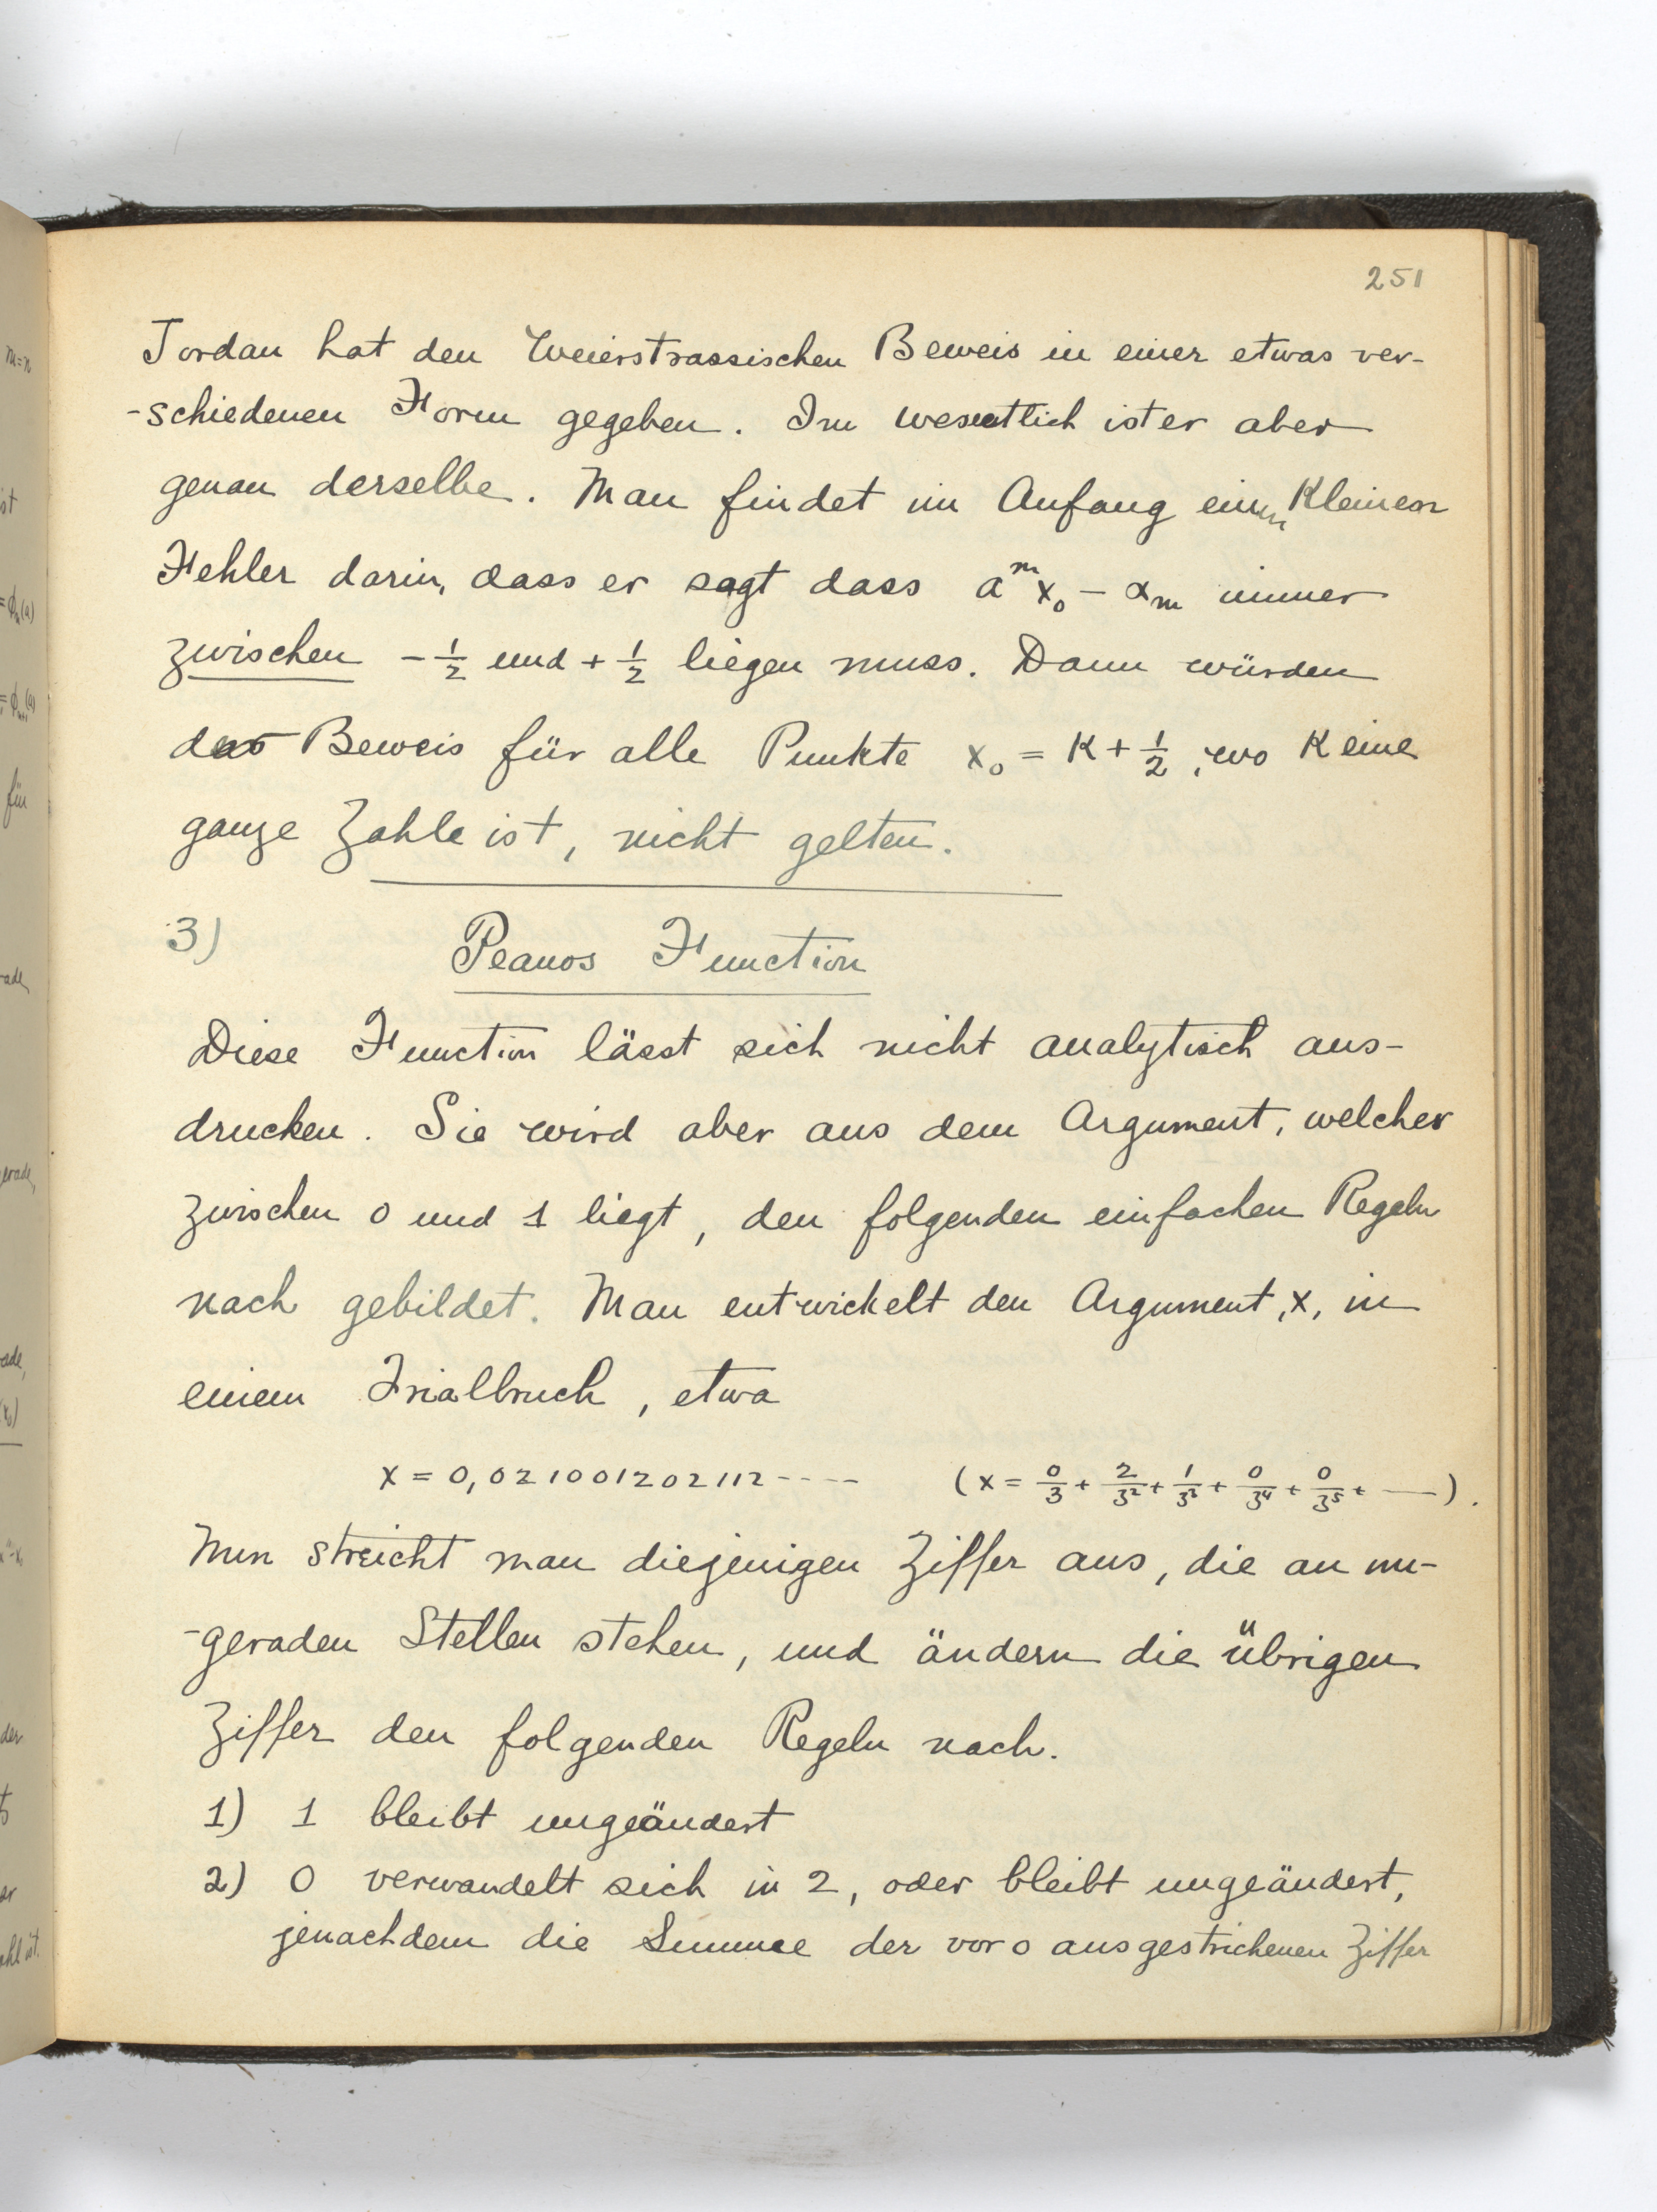 251
Jordan hat den Weierstrassischen Beweis in einer etwas ver-
-schiedenen Form gegeben. Im wesentlich ist er aber
genau derselbe. Man findet im Anfang einen kleinen
Fehler darin, dass er sagt dass aᵐx₀ - αₘ immer
zwischen -½ und +½ liegen muss. Dann würden
das Beweis für alle Punkte x₀ = K + ½, wo K eine
ganze Zahle ist, nicht gelten.
3) Peanos Function
Diese Function lässt sich nicht analytisch aus-
drucken. Sie wird aber aus dem Argument, welcher
zwischen 0 und 1 liegt, den folgenden einfachen Regeln
nach gebildet. Man entwickelt den Argument, x, in
einem Trialbruch, etwa
x = 0,021001202112---- (x = 0/3 + 2/3² + 1/3³ + 0/3⁴ + 0/3⁵ + —).
Nun streicht man diejenigen Ziffer aus, die an un-
-geraden Stellen stehen, und ändern die übrigen
Ziffer den folgenden Regeln nach.
1) 1 bleibt ungeändert
2) 0 verwandelt sich in 2, oder bleibt ungeändert,
jenachdem die Summe der vor 0 ausgestrichenen Ziffer
m=n
ist
für
rade,
erade,
rade,
der
er
ahl ist.